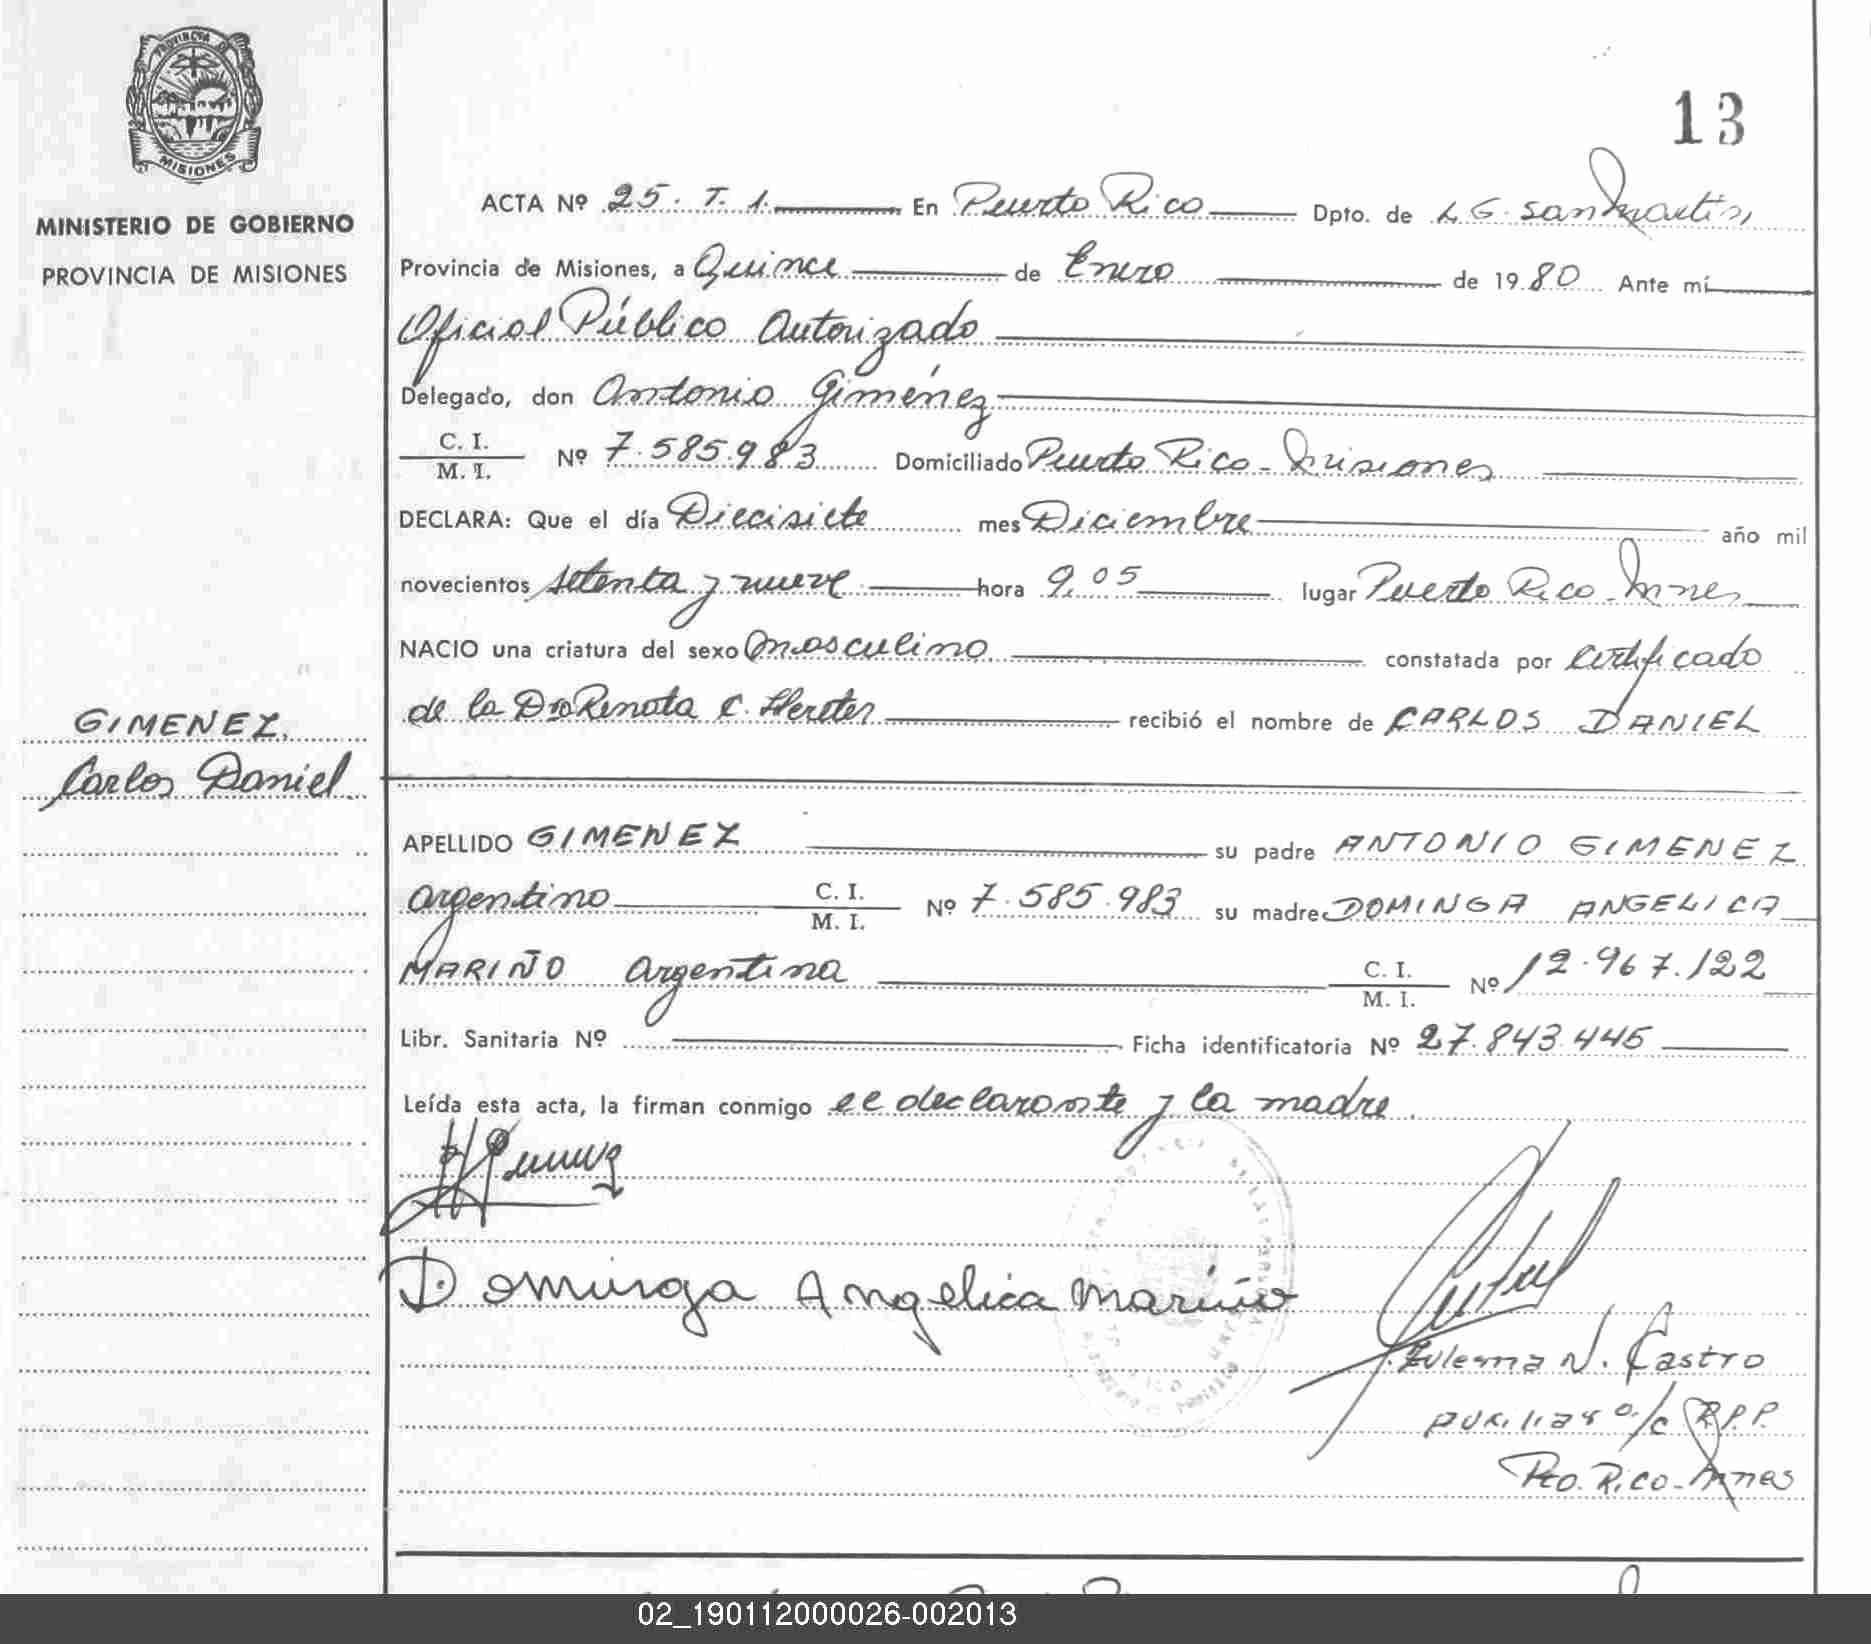 PROVINCIA DE
MISIONES
MINISTERIO DE GOBIERNO
PROVINCIA DE MISIONES
GIMENEZ.
Carlos Daniel
13
ACTA Nº 25. T. 1. En Puerto Rico Dpto. de L.G. San Martín,
Provincia de Misiones, a Quince de Enero de 1980 Ante mí
Oficial Público Autorizado
Delegado, don Antonio Giménez
C. I.
M. I. Nº 7.585.983 Domiciliado Puerto Rico - Misiones
DECLARA: Que el día Diecisiete mes Diciembre año mil
novecientos setenta y nueve hora 9,05 lugar Puerto Rico Mnes
NACIO una criatura del sexo masculino constatada por certificado
de la Dra Renata C. Herter recibió el nombre de CARLOS DANIEL
APELLIDO GIMENEZ su padre ANTONIO GIMENEZ
Argentino C. I.
M. I. Nº 7.585.983 su madre DOMINGA ANGELICA
MARIÑO Argentina C. I.
M. I. Nº 12.967.122
Libr. Sanitaria Nº Ficha identificatoria Nº 27.843.445
Leída esta acta, la firman conmigo el declarante y la madre.
Dominga Angelica Mariño
Zulema N. Castro
Auxiliar a/c R.P.P.
Pto. Rico - Mnes
02_190112000026-002013